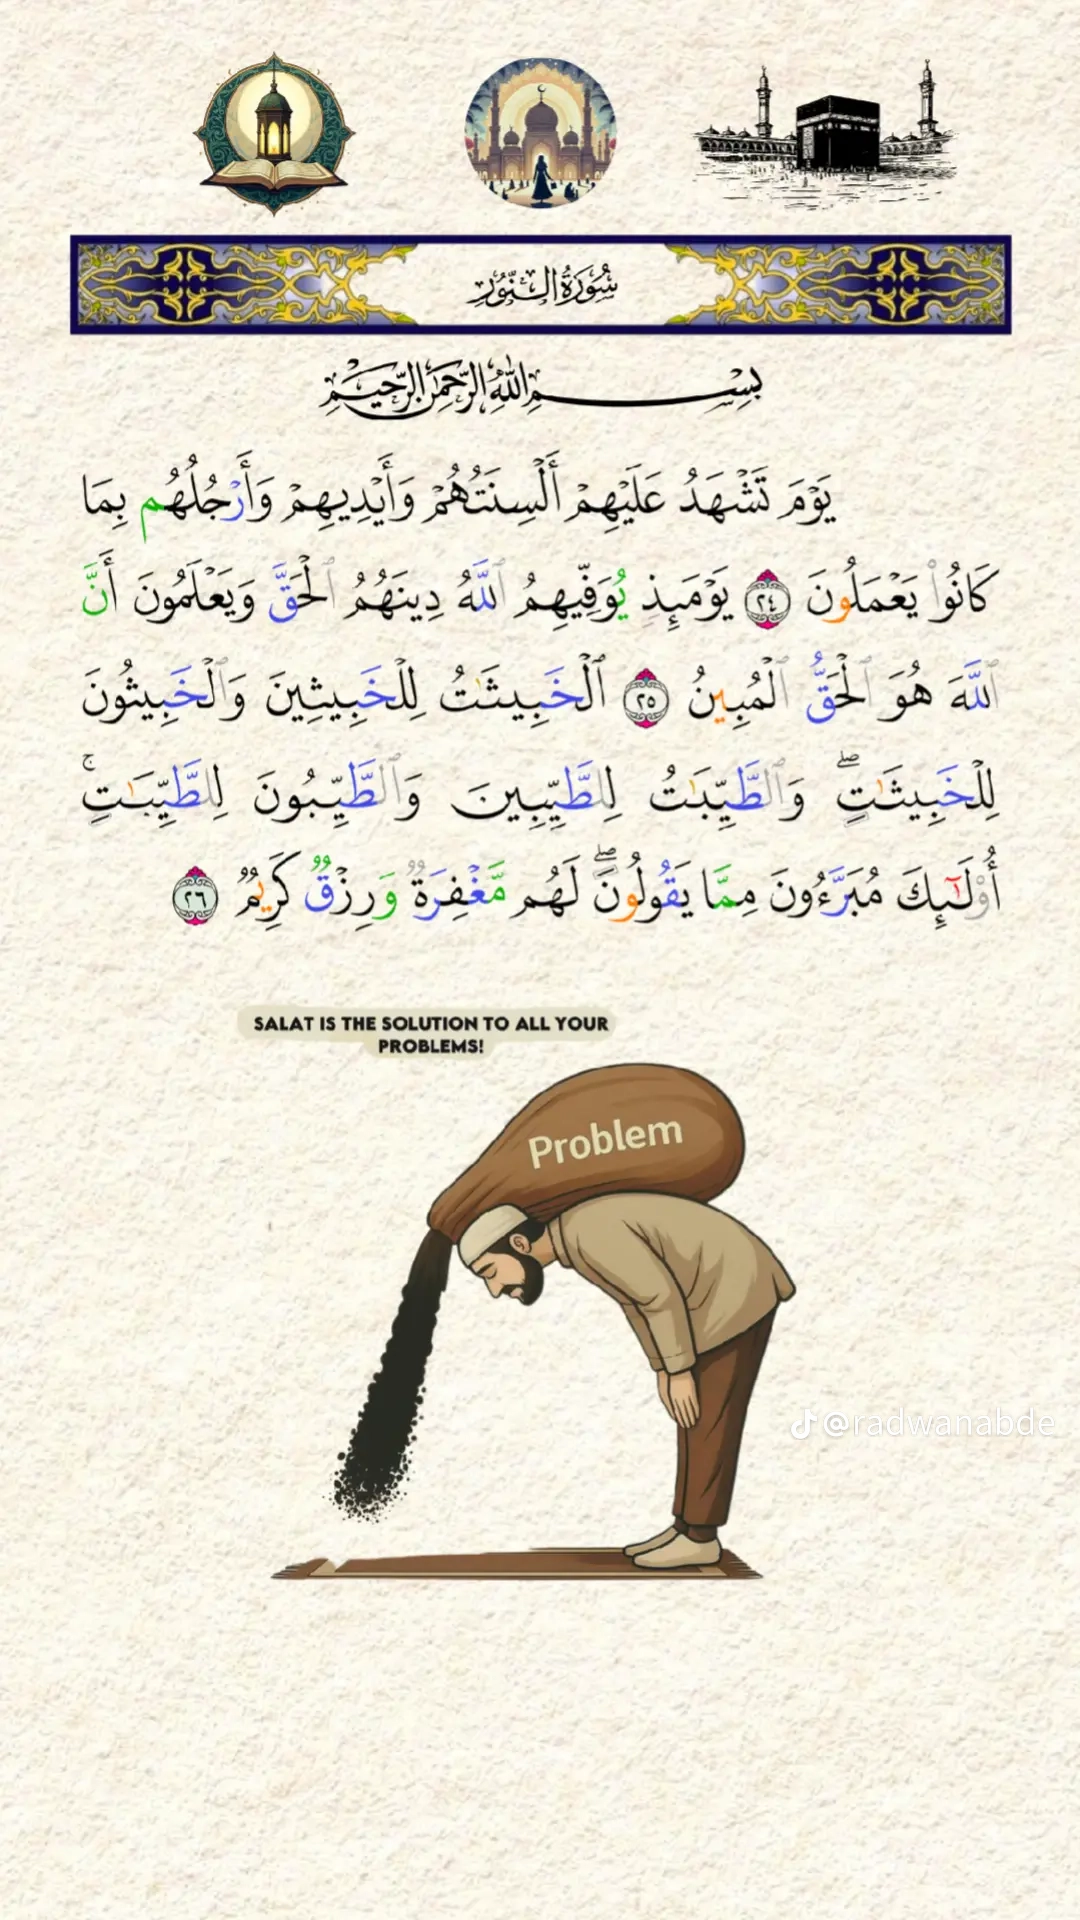 سُورَةُ النُّورِ
بِسْمِ اللَّهِ الرَّحْمَٰنِ الرَّحِيمِ
يَوْمَ تَشْهَدُ عَلَيْهِمْ أَلْسِنَتُهُمْ وَأَيْدِيهِمْ وَأَرْجُلُهُم بِمَا
كَانُوا۟ يَعْمَلُونَ ٢٤ يَوْمَئِذٍ يُوَفِّيهِمُ ٱللَّهُ دِينَهُمُ ٱلْحَقَّ وَيَعْلَمُونَ أَنَّ
ٱللَّهَ هُوَ ٱلْحَقُّ ٱلْمُبِينُ ٢٥ ٱلْخَبِيثَٰتُ لِلْخَبِيثِينَ وَٱلْخَبِيثُونَ
لِلْخَبِيثَٰتِۖ وَٱلطَّيِّبَٰتُ لِلطَّيِّبِينَ وَٱلطَّيِّبُونَ لِلطَّيِّبَٰتِۚ
أُو۟لَٰٓئِكَ مُبَرَّءُونَ مِمَّا يَقُولُونَۖ لَهُم مَّغْفِرَةٌ وَرِزْقٌ كَرِيمٌ ٢٦
SALAT IS THE SOLUTION TO ALL YOUR
PROBLEMS!
Problem
@radwanabde